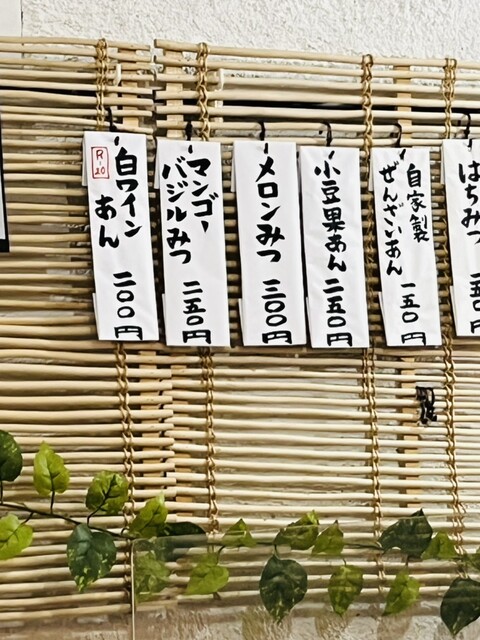 はちみつ
自家製
ぜんざいあん 一五〇円
小豆果あん 二五〇円
メロンみつ 三〇〇円
マンゴー
バジルみつ 二五〇円
R-20
白ワイン
あん 二〇〇円